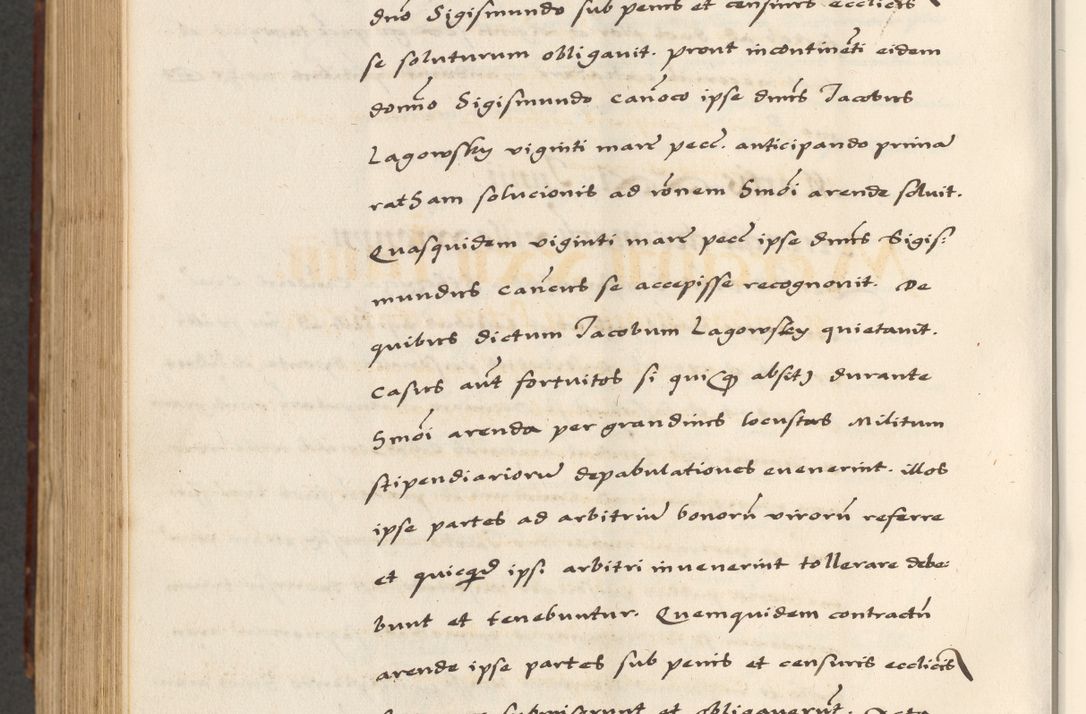 dno Sigismundo sub penis et censuris ecclicis
se soluturum obligavit. prout incontinēti eidem
domīo Sigismundo canōco ipse dnūs Iacobus
Lagowsky viginti marc̄ pecc̄. anticipando prima᷑
ratham solucionis ad rōnem hmōi arende solvit.
Quasquidem viginti marc̄ pecc̄ ipse dnūs Sigis:
mundus canōcus se accepisse recognovit. De
quibus dictum Iacobum Lagowsky quietavit.
Casus aūt fortuitos si qui absit) durante
hmōi arenda per grandines locustas Militum
stipendiarioru᷑ depabulationes evenerint. illos
ipse partes ad arbitriu᷑ bonorū virorū referre
et quicquid ipsi arbitri invenerint tollerare debe:
bunt et tenebuntur. Quemquidem contractū
arende ipse partes sub penis et censuris ecclicis
submiserunt et obligaverūt.